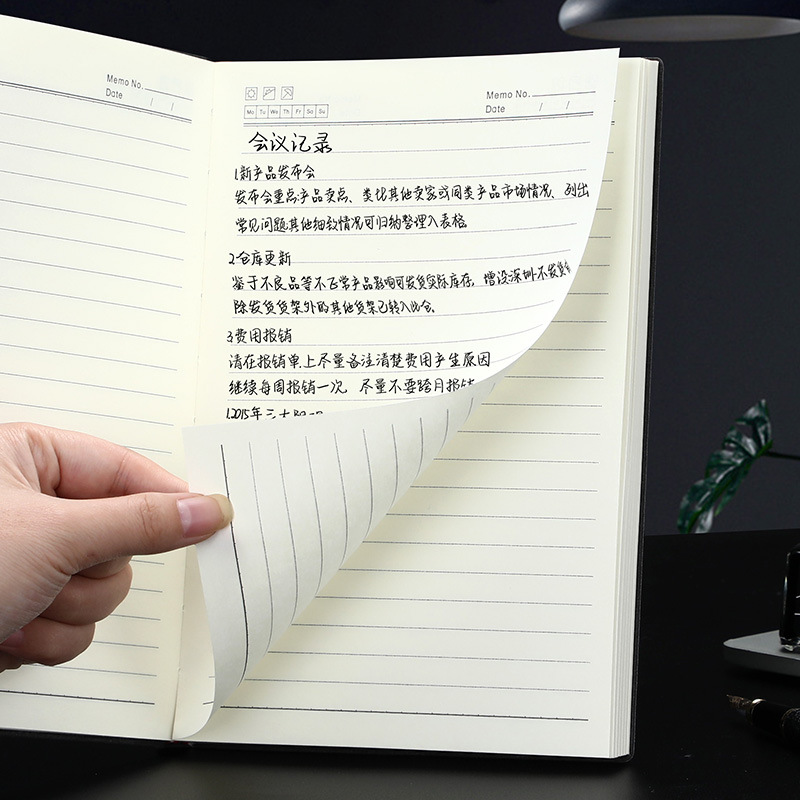 Memo No.
Date / /
Memo No.
Mo Tu We Th Fr Sa Su
Date / /
会议记录
1.新产品发布会
发布会重点:产品卖点、类比其他卖家或同类产品市场情况、列出
常见问题其他细致情况可归纳整理入表格
2.仓库更新
鉴于不良品等不正常产品影响可发货实际库存,增设深圳-不发货
除发货货架外的其他货架已转入此仓.
3.费用报销
请在报销单上尽量备注清楚费用产生原因
继续每周报销一次,尽量不要跨月报销
1.2015年三